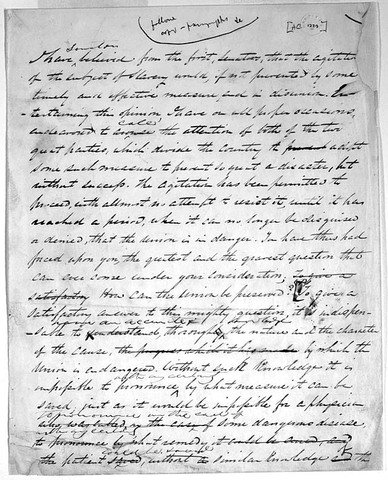 follow
copy - paragraphs &c
Senators
I have, believed from the first, Senators, that the agitation
of the subject of slavery would, if not prevented by some
timely and effective measure end in disunion. En-
-tertaining this opinion, I have on all proper occasions,
endeavored to arouse the attention of both of the two
great parties, which divide the country, to adopt
some such measure to prevent so great a disaster, but
without success. The agitation has been permitted to
proceed, with allmost no attempt to resist it, until it has
reached a period, when it can no longer be disguised
or denied, that the Union is in danger. You have thus had
forced upon you, the greatest and the gravest question that
can ever come under your consideration;
satisfactory How can the Union be preserved? To give a
satisfactory answer to this mighty question, it is indispen-
-sable to understand, the nature and the character
of the cause, the progress by which the
Union is endangered. Without such knowledge it is
impossible to pronounce, by what measure it can be
saved, just as it would be impossible for a physician
of some dangerous disease
to pronounce by what remedy it could be cured, and
the patient saved, without similar knowledge and the